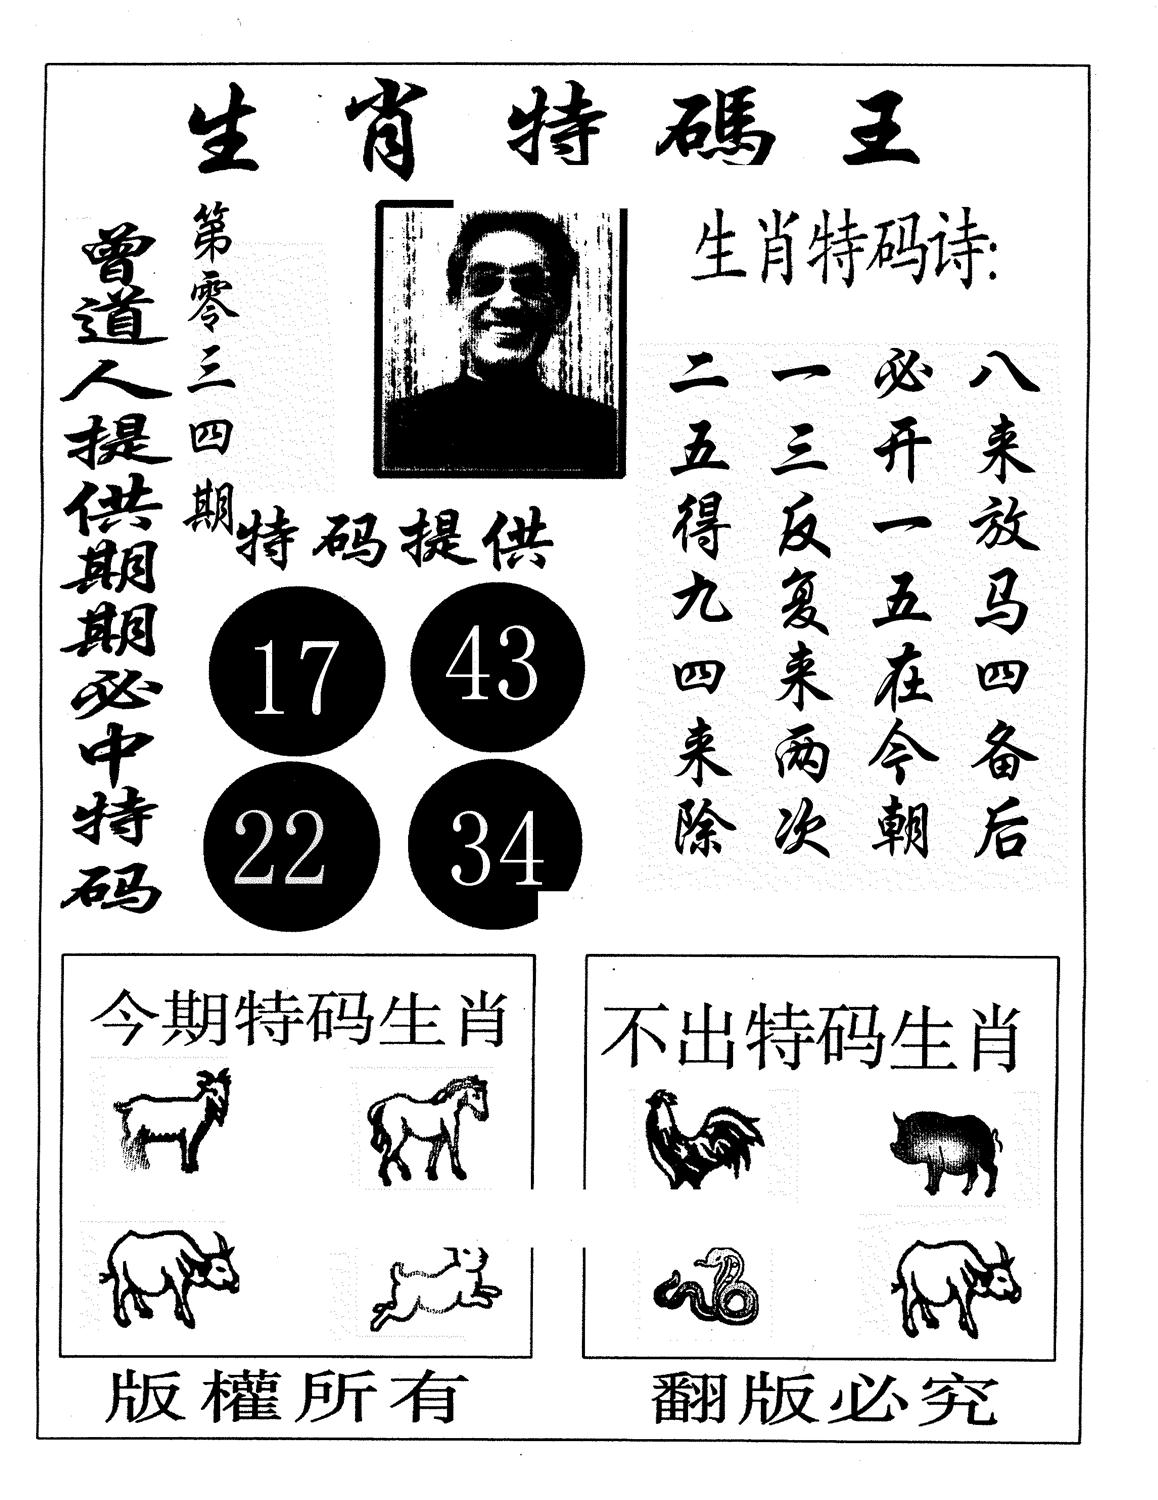 生肖特碼王
曾道人提供期期必中特码
第零三四期
生肖特码诗:
八来放马四备后
必开一五在今朝
一三反复来两次
二五得九四来除
特码提供
17 43
22 34
今期特码生肖
不出特码生肖
版權所有 翻版必究